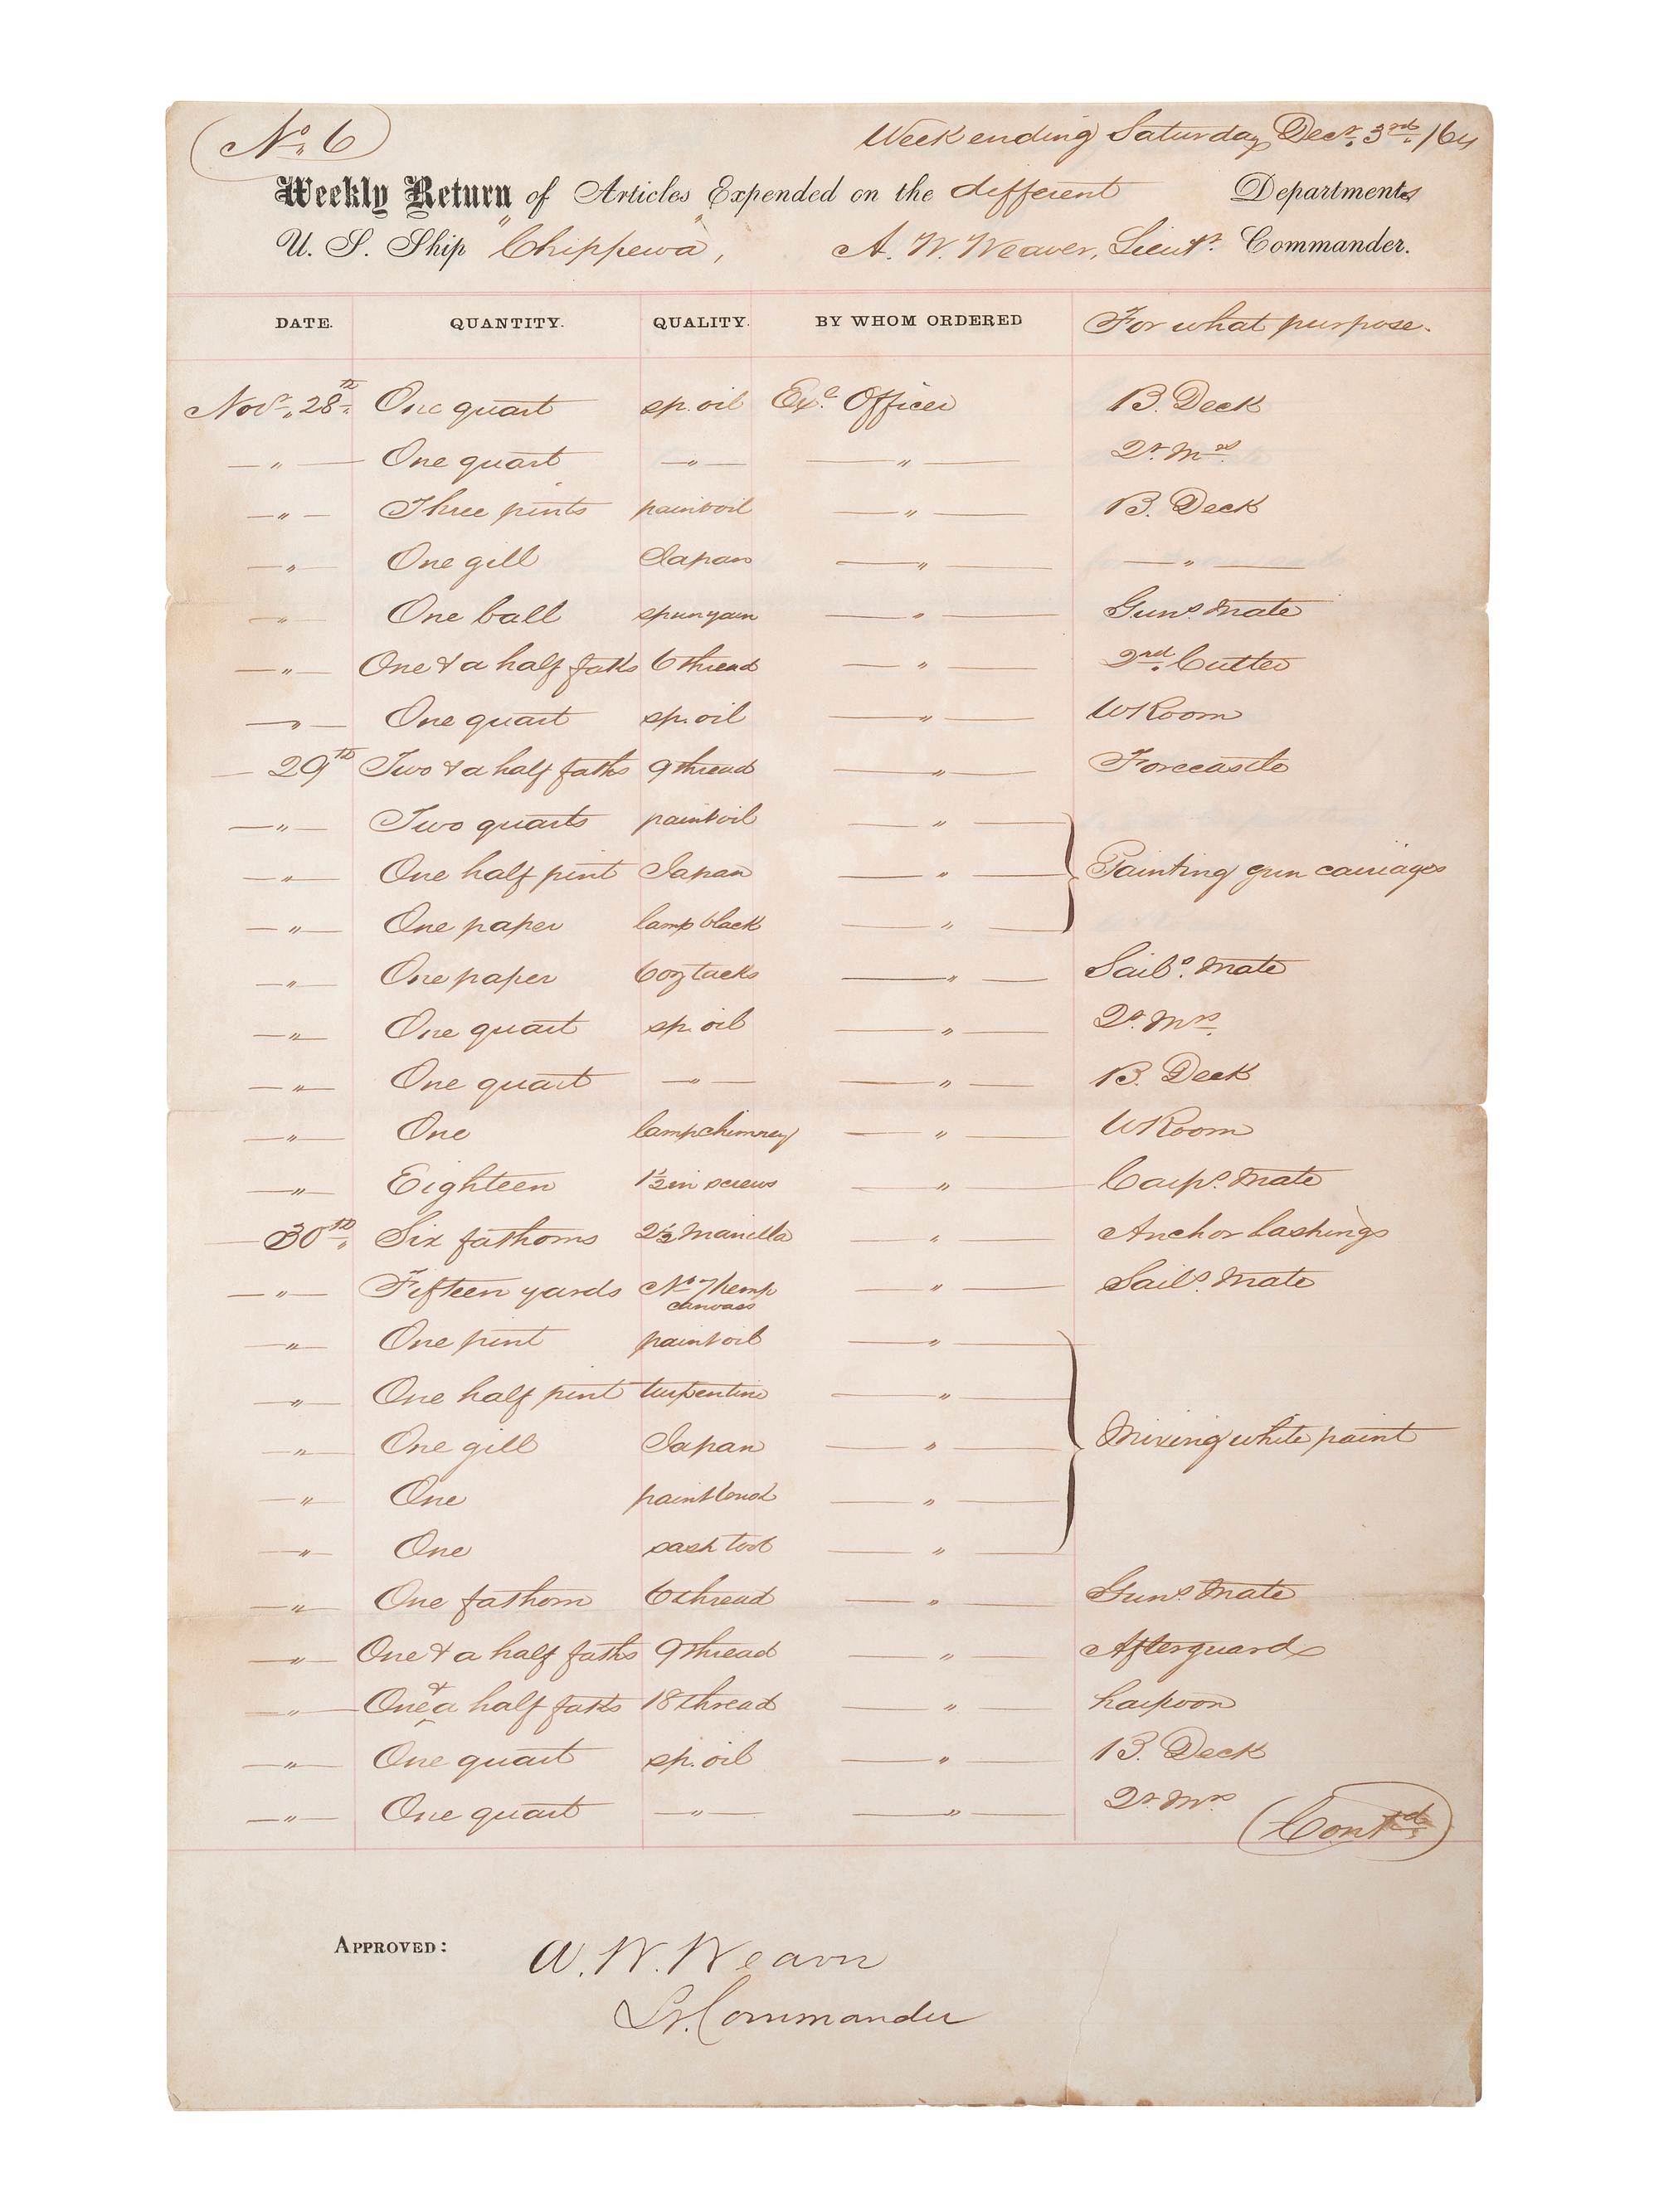 No. 6
Week ending Saturday Decr. 3rd /64
Weekly Return of Articles Expended on the different Departments
U. S. Ship "Chippewa", A. W. Weaver, Lieut. Commander.
DATE. QUANTITY. QUALITY. BY WHOM ORDERED For what purpose.
Novr. 28th One quart sp. oil Exe. Officer B. Deck
" One quart " " Qr. Mrs.
" Three pints paint oil " B. Deck
" One gill Japan " "
" One ball spunyarn " Guns. Mate
" One & a half faths 6 thread " 2nd. Cutter
" One quart sp. oil " WRoom
29th Two & a half faths 9 thread " Forecastle
" Two quarts paint oil "
" One half pint Japan " Painting gun carriages
" One paper lamp black "
" One paper 6oz tacks " Sails. Mate
" One quart sp. oil " Qr. Mrs.
" One quart " " B. Deck
" One lampchimney " WRoom
" Eighteen 1½ in screws " Carps. Mate
30th. Six fathoms 2½ Manilla " Anchor Lashings
" Fifteen yards No 7 hemp canvass " Sails. Mate
" One pint paint oil "
" One half pint turpentine "
" One gill Japan " Mixing white paint
" One paint "
" One sash tool "
" One fathom 6 thread " Guns. Mate
" One & a half faths 9 thread " Afterguard
" One & a half faths 18 thread " harpoon
" One quart sp. oil " B. Deck
" One quart " " Qr. Mrs.
Contd.
APPROVED: A. W. Weaver
Lt. Commander